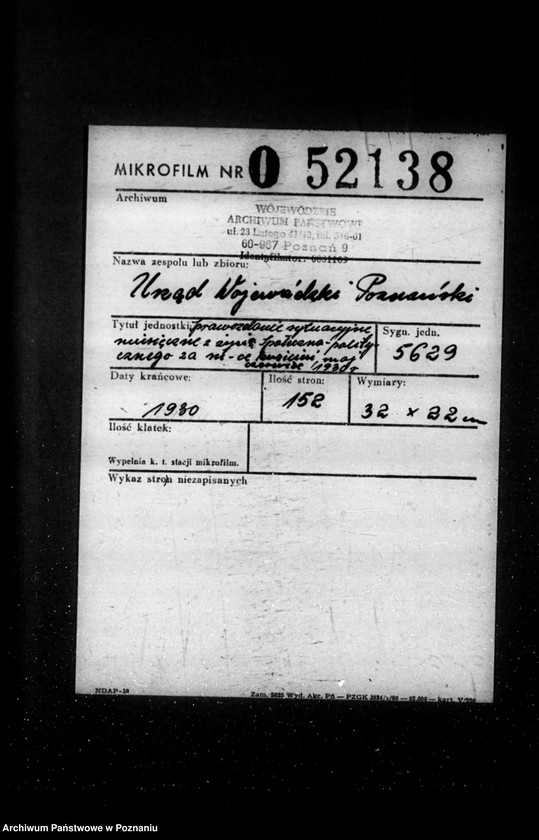 MIKROFILM NR 0 52138
Archiwum
WOJEWÓDZKIE
ARCHIWUM PAŃSTWOWE
ul. 23 Lutego 41/43, tel.
60-967 Poznań 9
Identyfikator:
Nazwa zespołu lub zbioru:
Urząd Wojewódzki Poznański
Tytuł jednostki: sprawozdanie sytuacyjne
miesięczne z życia społeczno-polity-
cznego za m-ce kwiecień maj
czerwiec 1930 r
Sygn. jedn.
5629
Daty krańcowe:
1930
Ilość stron:
152
Wymiary:
32 x 22 cm
Ilość klatek:
Wypełnia k. t. stacji mikrofilm.
Wykaz stron niezapisanych
NDAP-18
Zam. Wyd. Akc. Pń — PZGK
Archiwum Państwowe w Poznaniu